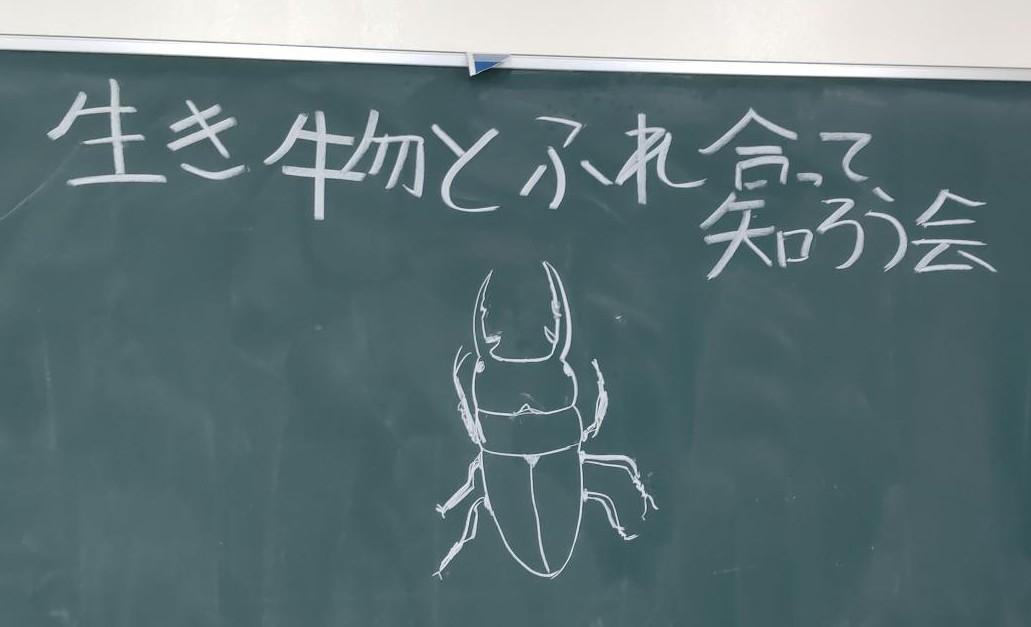 生き物とふれ合って、
知ろう会